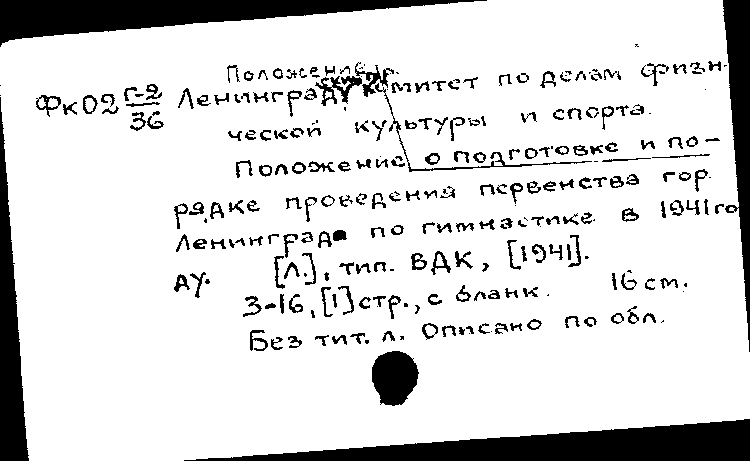 Положение гр.
Фк02 Г-2/36 Ленинград комитет по делам физи-
ческой культуры и спорта.
Положение о подготовке и по-
рядке проведения первенства гор.
Ленинграда по гимнастике в 1941 го
ду. [Л.], тип. ВДК, [1941].
3-16, [1] стр., с бланк. 16 см.
Без тит. л. Описано по обл.